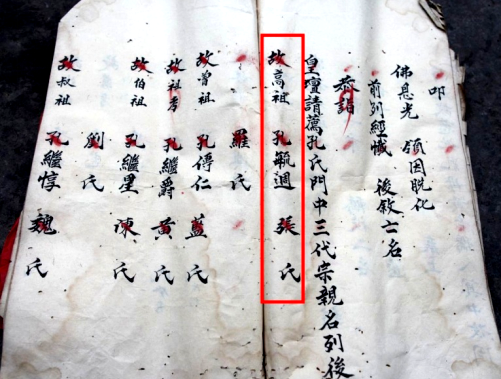 叩
佛恩光 領因脫化
前列經懺 後敘亡名
恭詣
皇壇請薦孔氏門中三代宗親名列後
故高祖 孔毓週 張氏
羅氏
故曾祖 孔傳仁 藍氏
故祖考 孔繼爵 黃氏
故伯祖 孔繼星 陳氏
劉氏
故叔祖 孔繼惇 魏氏